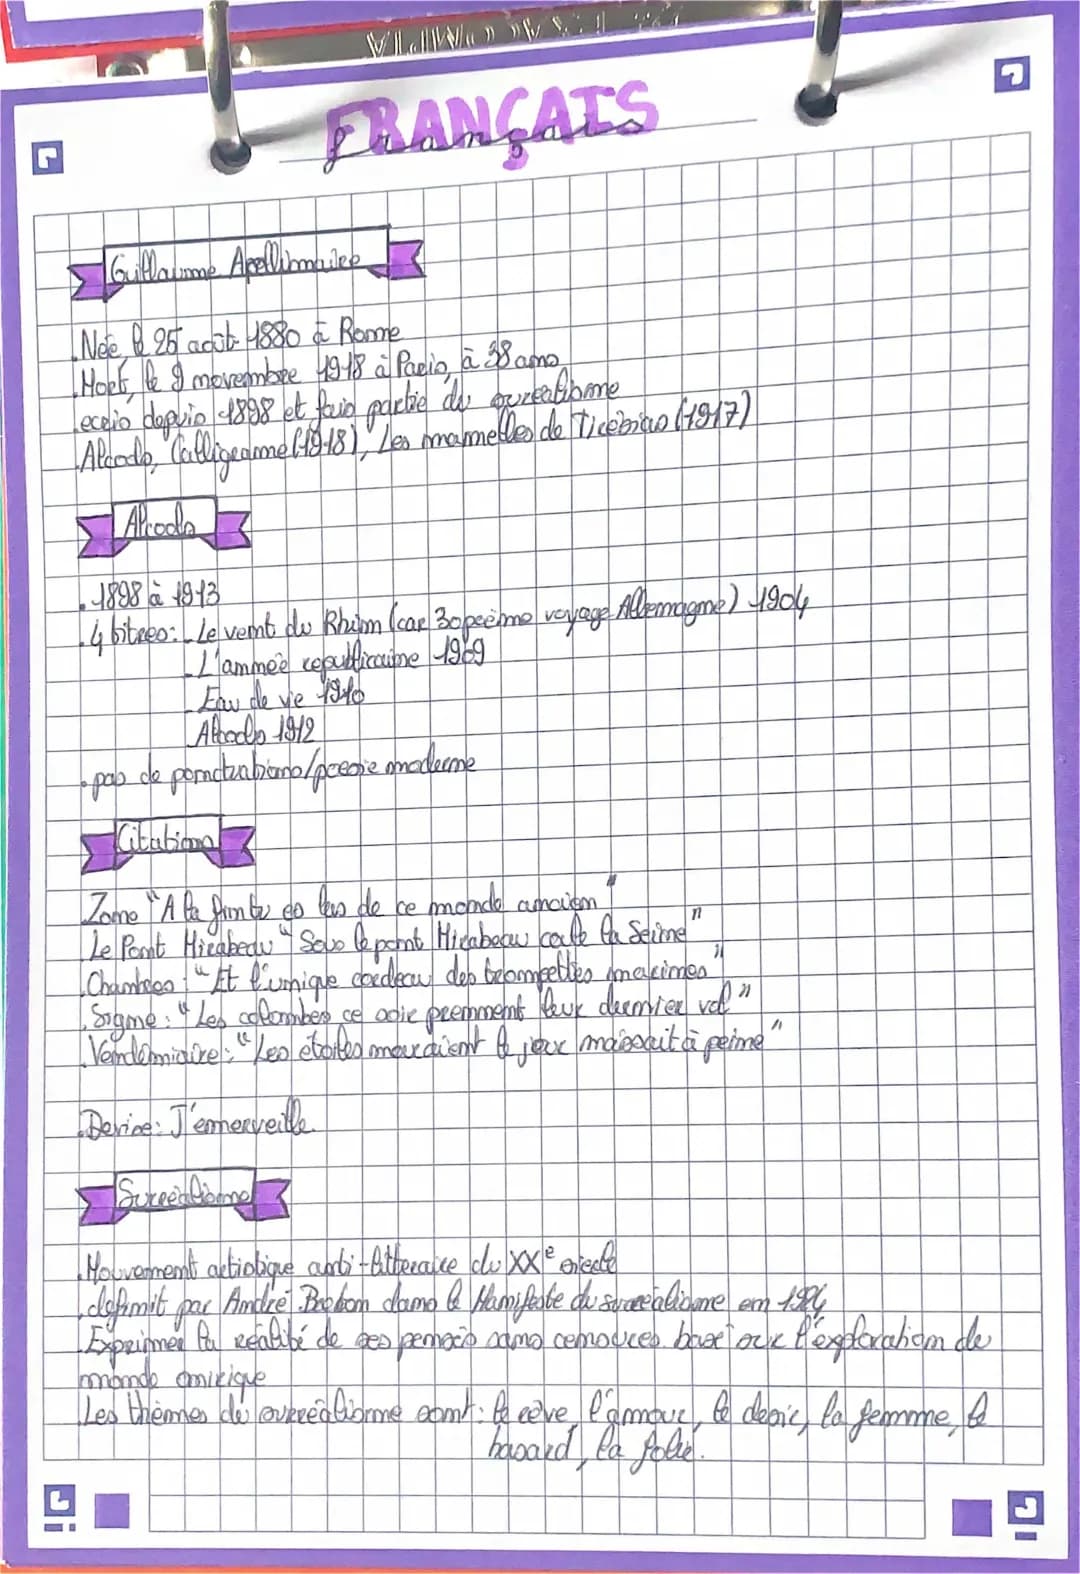 FRANÇAIS
Français
Guillaume Apollinaire
. Née le 25 août 1880 à Rome
. Mort, le 9 novembre 1918 à Paris, à 38 ans
. écris depuis 1898 et fais partie du surealisme
. Alcools, Calligramme (1918), Les mamelles de Tirésias (1917)
Alcools
. 1898 à 1913
. 4 titres: - Le vent du Rhin (car voyage Allemagne) 1904
- L'année républicaine 1909
- Eau de vie 1910
- Alcools 1912
. pas de ponctuations/poesie moderne
Citations
. Zone "A la fin tu es las de ce monde ancien"
. Le Pont Mirabeau "Sous le pont Mirabeau coule la Seine"
. Chantres : "Et l'unique cordeau des trompettes marines"
. Signe : "Les colombes ce soir prennent leur dernier vol"
. Vendémiaire : "Les étoiles mouraient le jour naissait à peine"
. Devise: J'émerveille.
Surréalisme
. Mouvement artistique anti-litteraire du XXe siecle
. définit par André Breton dans le Manifeste du surréalisme en 1924
. Exprimer la réalité de ses pensés sans censures basé sur l'exploration de
monde onirique
. Les thèmes du surréalisme sont : le rêve, l'amour, le desir, la femme, le
hasard, la folie.